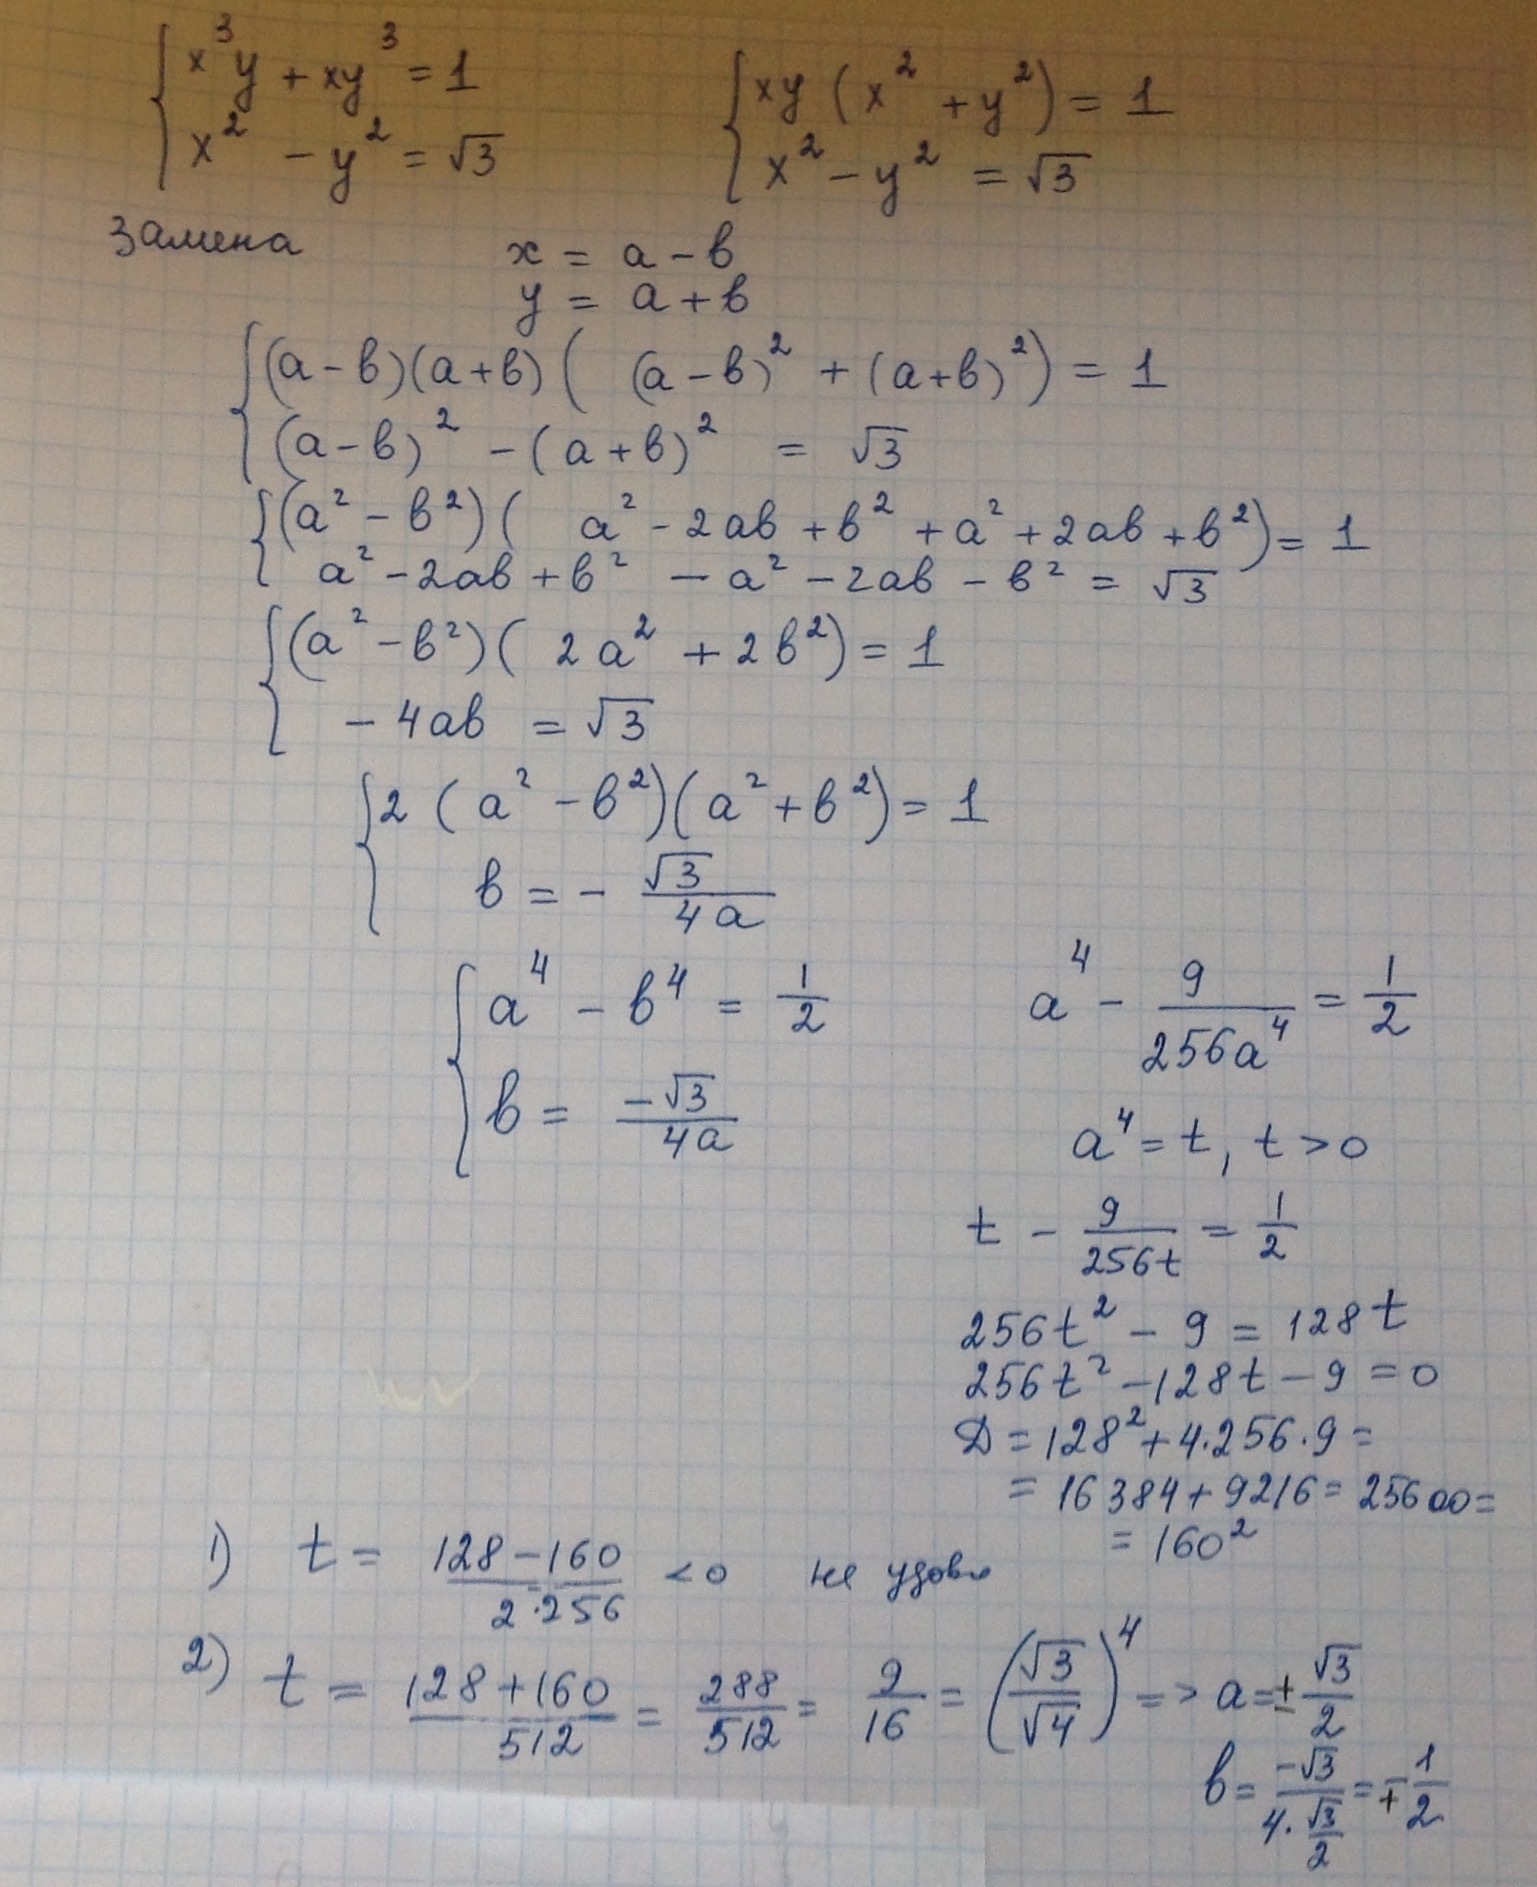 { x³y + xy³ = 1    { xy (x² + y²) = 1
{ x² - y² = √3    { x² - y² = √3
Замена    x = a - b
y = a + b
{ (a - b)(a + b) ( (a - b)² + (a + b)² ) = 1
{ (a - b)² - (a + b)² = √3
{ (a² - b²) ( a² - 2ab + b² + a² + 2ab + b² ) = 1
{ a² - 2ab + b² - a² - 2ab - b² = √3
{ (a² - b²) ( 2a² + 2b² ) = 1
{ - 4ab = √3
{ 2 (a² - b²)(a² + b²) = 1
{ b = - √3 / 4a
{ a⁴ - b⁴ = 1/2    a⁴ - 9 / 256a⁴ = 1/2
{ b = -√3 / 4a    a⁴ = t, t > 0
t - 9 / 256t = 1/2
256t² - 9 = 128t
256t² - 128t - 9 = 0
D = 128² + 4·256·9 =
= 16384 + 9216 = 25600 =
= 160²
1) t = 128 - 160 / 2·256 < 0 не удовл
2) t = 128 + 160 / 512 = 288 / 512 = 9 / 16 = (√3 / √4)⁴ => a = ± √3 / 2
b = -√3 / 4·√3/2 = ∓ 1/2